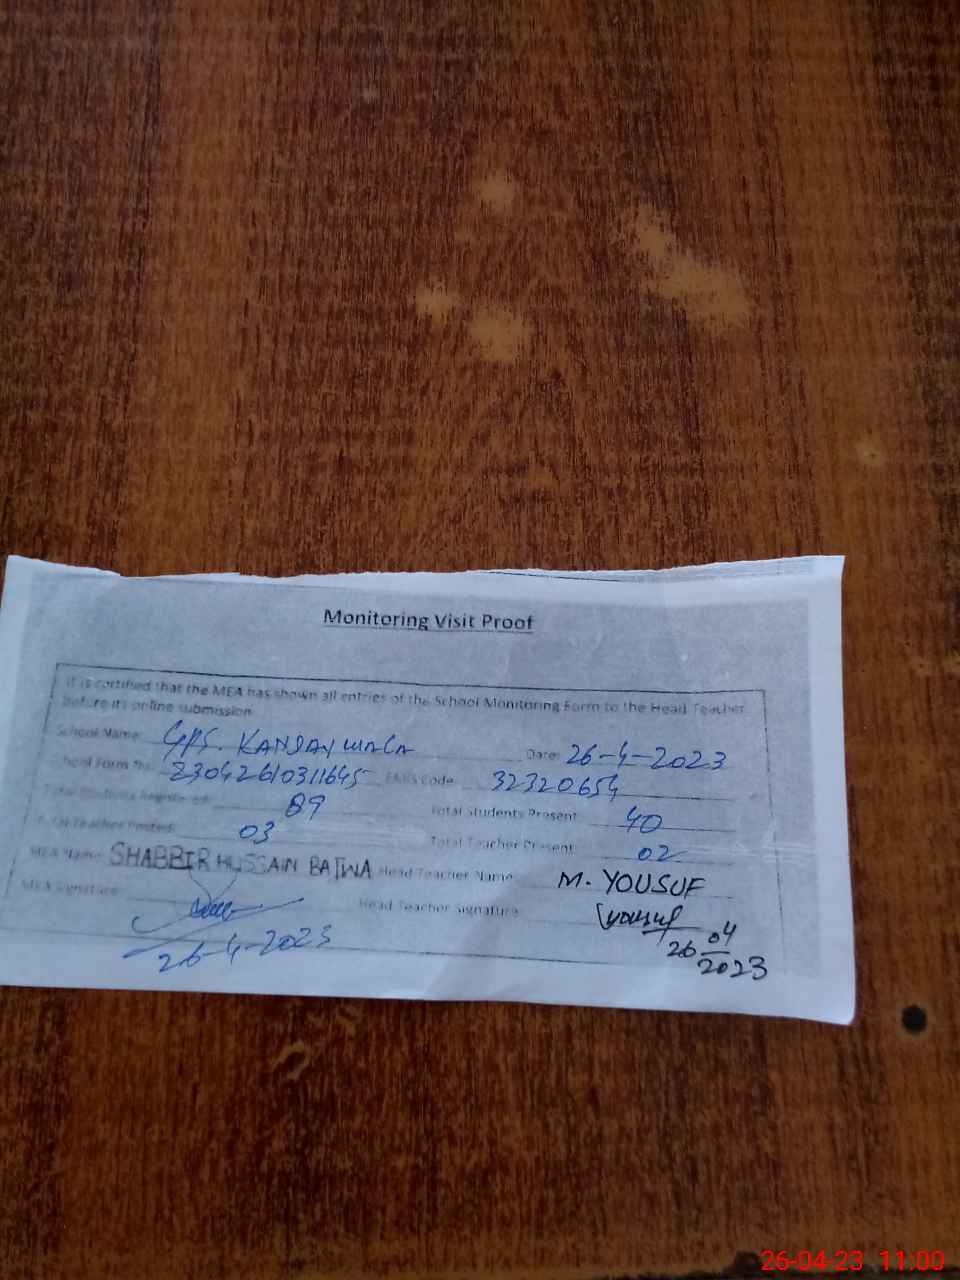 Monitoring Visit Proof
It is certified that the MEA has shown all entries of the School Monitoring Form to the Head Teacher
before its online submission
School Name: GPS. KANJAYWALA Date: 26-4-2023
School Form No: 23042610311645 Code: 32320654
89 Total Students Present: 40
Total Teacher Posted: 03 Total Teacher Present: 02
MEA Name: SHABBIR HUSSAIN BAJWA Head Teacher Name: M. YOUSUF
MEA Signature: Head Teacher Signature: Yousuf
26-4-2023 26 04 2023
26-04-23 11:00